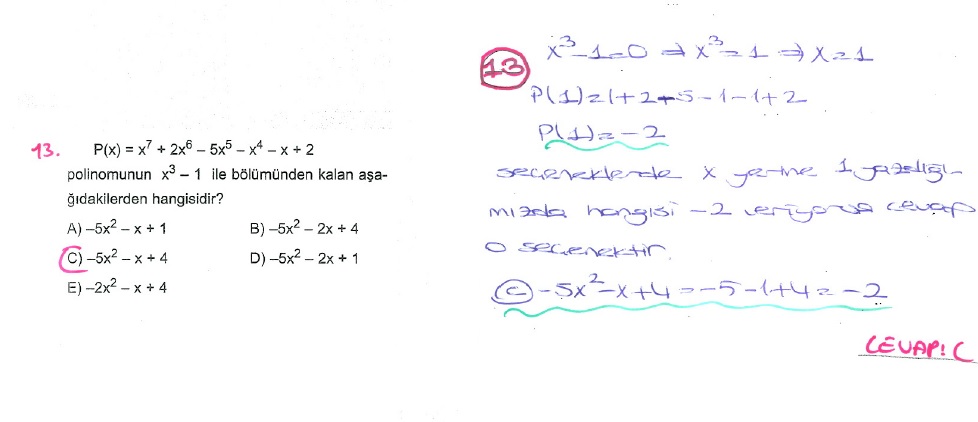 13. P(x) = x⁷ + 2x⁶ – 5x⁵ – x⁴ – x + 2
polinomunun x³ – 1 ile bölümünden kalan aşa-
ğıdakilerden hangisidir?
A) –5x² – x + 1 B) –5x² – 2x + 4
C) –5x² – x + 4 D) –5x² – 2x + 1
E) –2x² – x + 4
13 x³–1=0 ⇒ x³=1 ⇒ x=1
P(1)=1+2+–5–1–1+2
P(1)=–2
seçeneklerde x yerine 1 yazdığı-
mızda hangisi –2 veriyorsa cevap
o seçenektir.
C –5x²–x+4=–5–1+4=–2
CEVAP: C